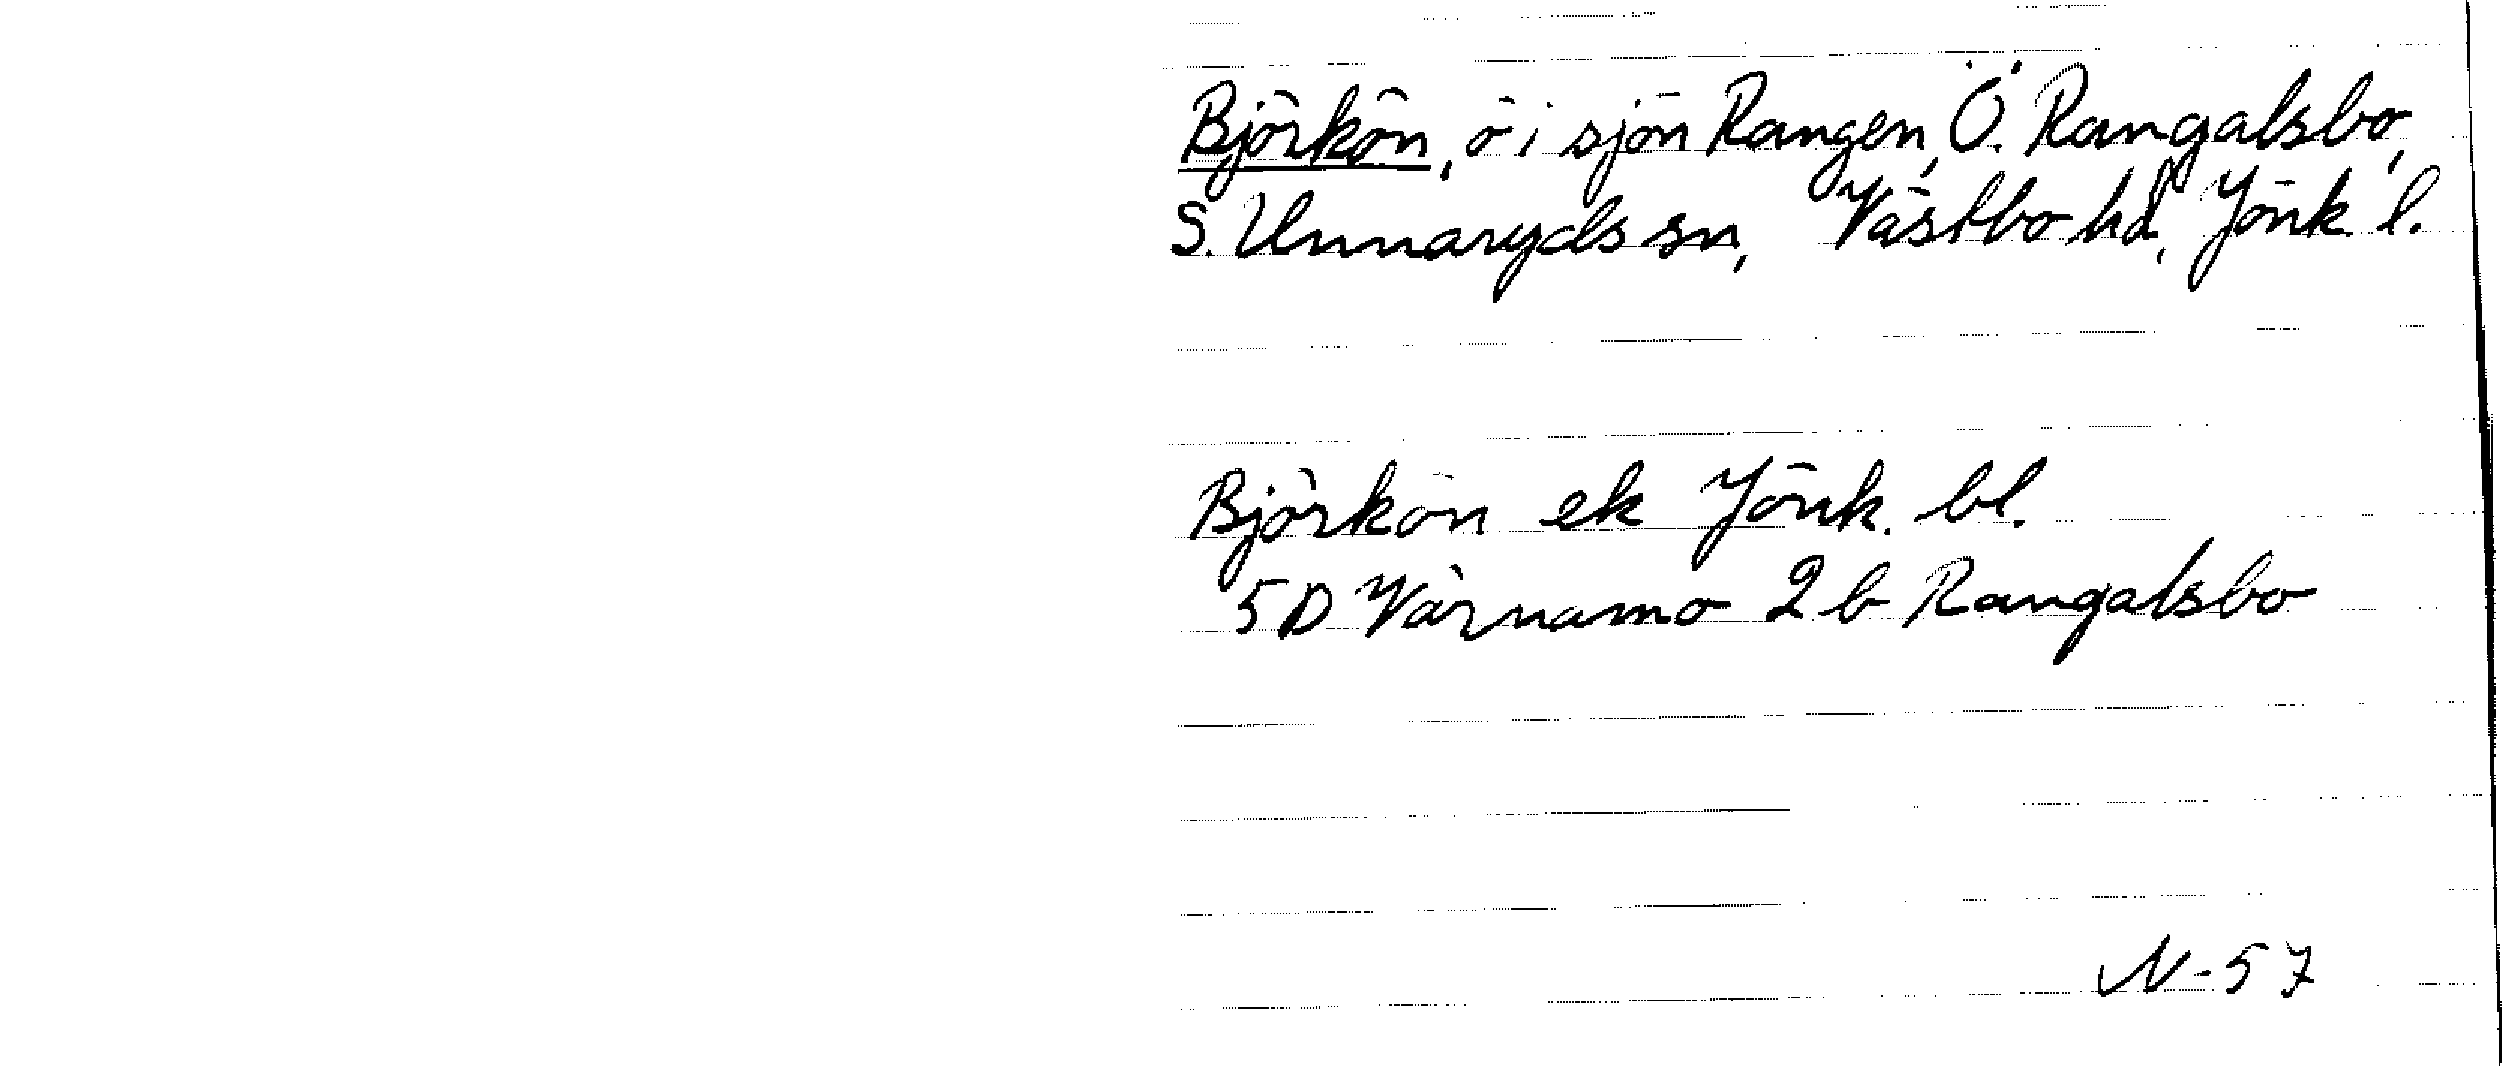 Björkön, ö i sjön Rangen, Ö. Rangalsbo,
S. Unnaryds sn, Västbo hd, Jönk l.
Björkön ek Jönk. bl.
5D Värnamo 2 b Rangalsbo
N-57